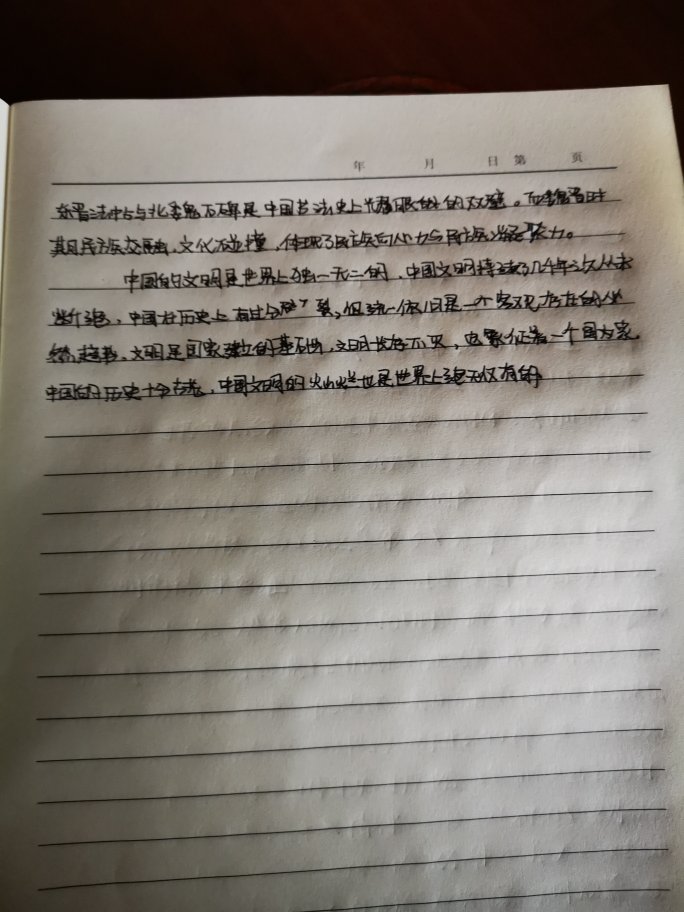 年 月 日 第 页
东晋法帖与北魏石碑是中国书法史上光耀眼的双璧。而魏晋时
期民族交融,文化碰撞,体现了民族向心力与民族凝聚力。
中国的文明是世界上独一无二的,中国文明持续了几千年之久从未
断绝,中国在历史上有过分裂,但统一依旧是一个客观存在的必
然趋势,文明是国家建立的基石,文明长存不灭,也象征着一个国家,
中国的历史十分古老,中国文明的火山也是世界上绝无仅有的